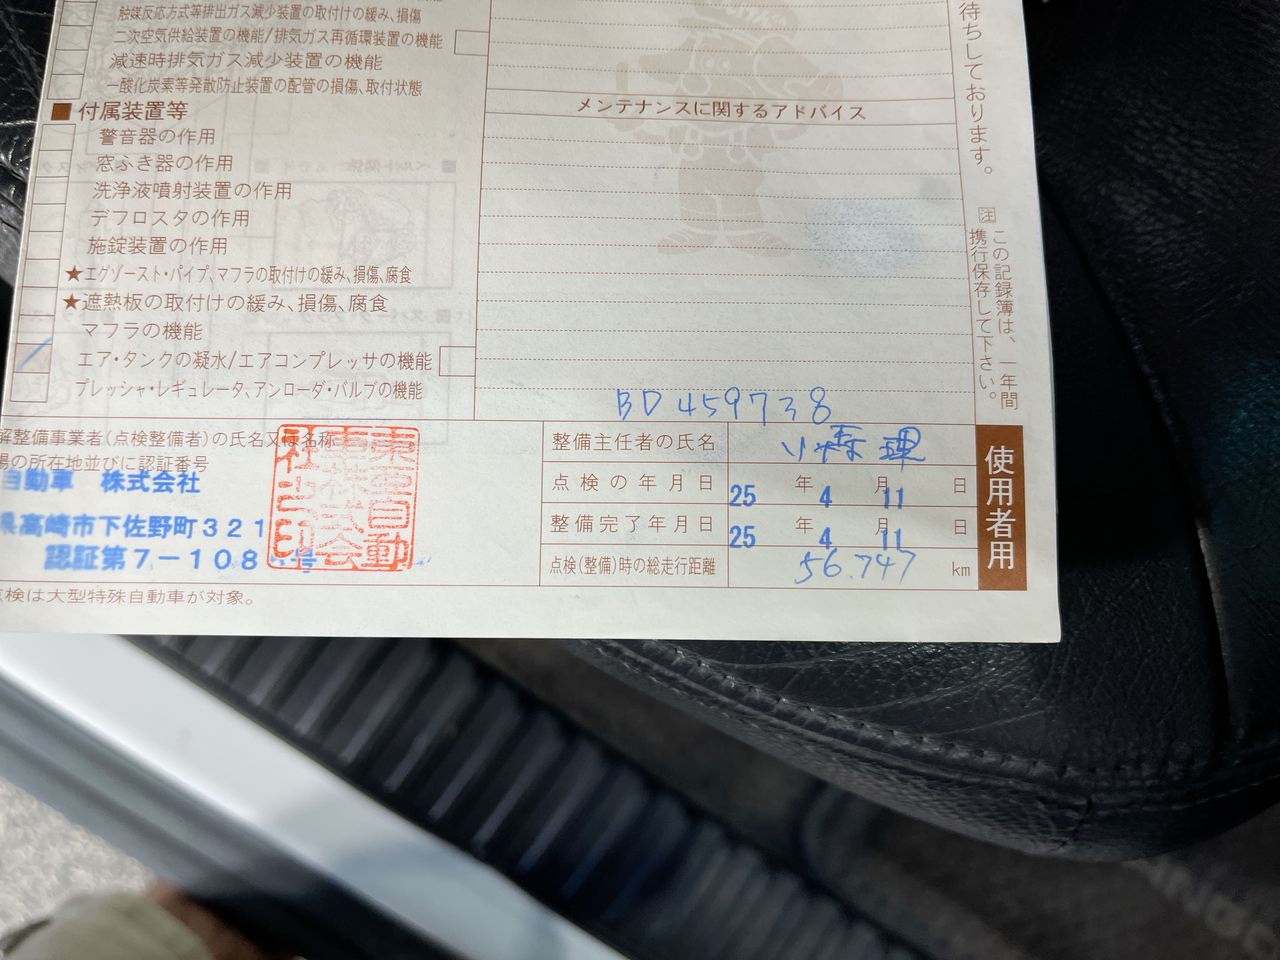 触媒反応方式等排出ガス減少装置の取付けの緩み、損傷
二次空気供給装置の機能/排気ガス再循環装置の機能
減速時排気ガス減少装置の機能
一酸化炭素等発散防止装置の配管の損傷、取付状態
■ 付属装置等
警音器の作用
窓ふき器の作用
洗浄液噴射装置の作用
デフロスタの作用
施錠装置の作用
★エグゾースト・パイプ、マフラの取付けの緩み、損傷、腐食
★遮熱板の取付けの緩み、損傷、腐食
マフラの機能
エア・タンクの凝水/エアコンプレッサの機能
プレッシャ・レギュレータ、アンローダ・バルブの機能
メンテナンスに関するアドバイス
待ちしております。
注 この記録簿は、一年間
携行保存して下さい。
BD459738
解整備事業者(点検整備者)の氏名又は名称
場の所在地並びに認証番号
自動車 株式会社
県高崎市下佐野町321
認証第7-108 号
東亜自動
車株式会
社之印
整備主任者の氏名 小森 理
点検の年月日 25 年 4 月 11 日
整備完了年月日 25 年 4 月 11 日
点検(整備)時の総走行距離 56.747 km
使用者用
点検は大型特殊自動車が対象。